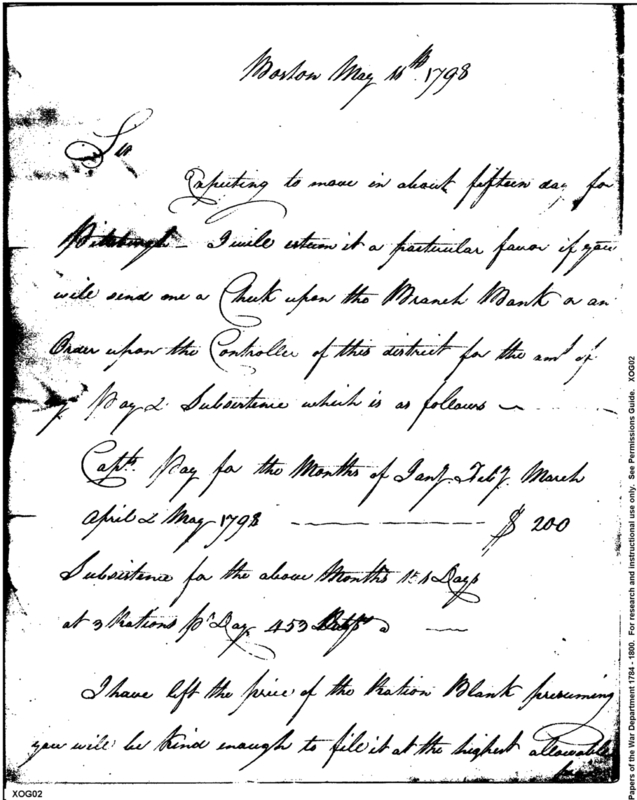 Boston May 11th 1798
Sir
Expecting to move in about fifteen days for
Pittsburgh — I will esteem it a particular favor if you
will send me a Check upon the Branch Bank or an
Order upon the Controller of this district for the amt of
my Pay & Subsistence which is as follows —
Capts Pay for the Months of Jany Feby March
April & May 1798 — — — $ 200
Subsistence for the above Months 151 Days
at 3 Rations pr Day 453 @ —
I have left the price of the Ration Blank presuming
you will be kind enough to fill it at the highest allowable
XOG02
Papers of the War Department 1784 - 1800. For research and instructional use only. See Permissions Guide. XOG02